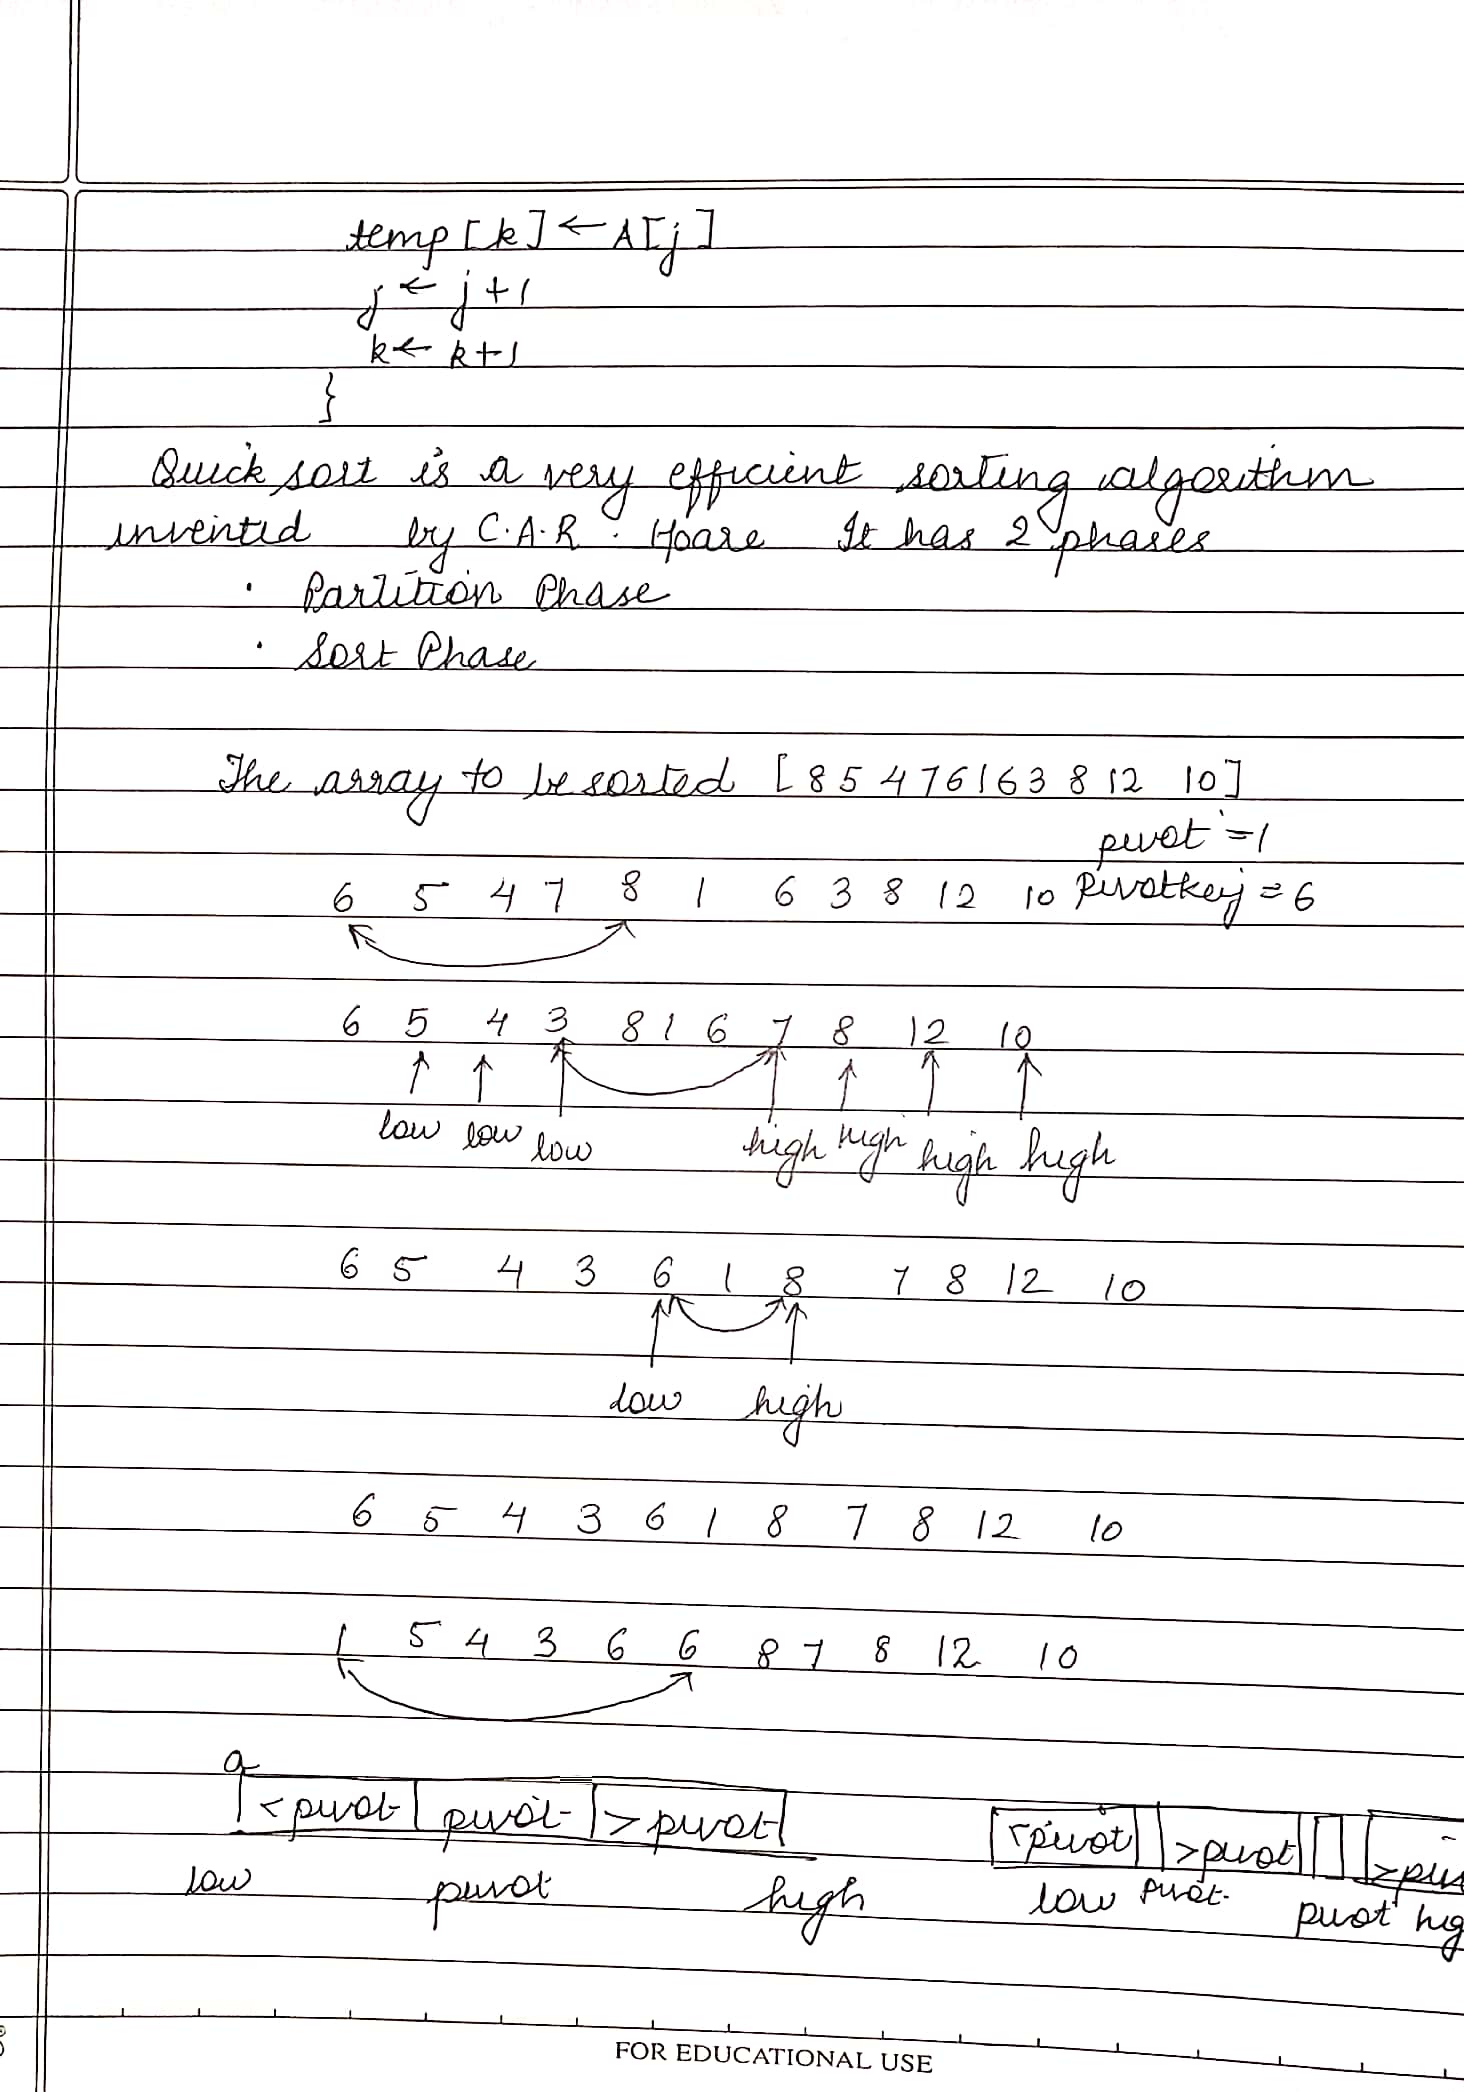 temp[k] ← A[j]
j ← j+1
k ← k+1
}
Quick sort is a very efficient sorting algorithm
invented by C.A.R. Hoare It has 2 phases
· Partition Phase
· Sort Phase
The array to be sorted [8 5 4 7 6 1 6 3 8 12 10]
pivot = 1
6 5 4 7 8 1 6 3 8 12 10 Pivotkey = 6
6 5 4 3 8 1 6 7 8 12 10
low low low high high high high
6 5 4 3 6 1 8 7 8 12 10
low high
6 5 4 3 6 1 8 7 8 12 10
1 5 4 3 6 6 8 7 8 12 10
a
<pivot pivot >pivot <pivot >pivot
low pivot high low pivot pivot
FOR EDUCATIONAL USE